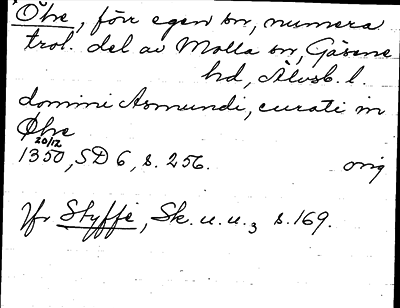 Öhe, förr egen sn, numera
trol. del av Molla sn, Gäsene
hd, Älvsb. l.
domini Asmundi, curati in
Øhe
20/12
1350, SD 6, s. 256. orig
Jfr Styffe, Sk. u. u.3 s. 169.